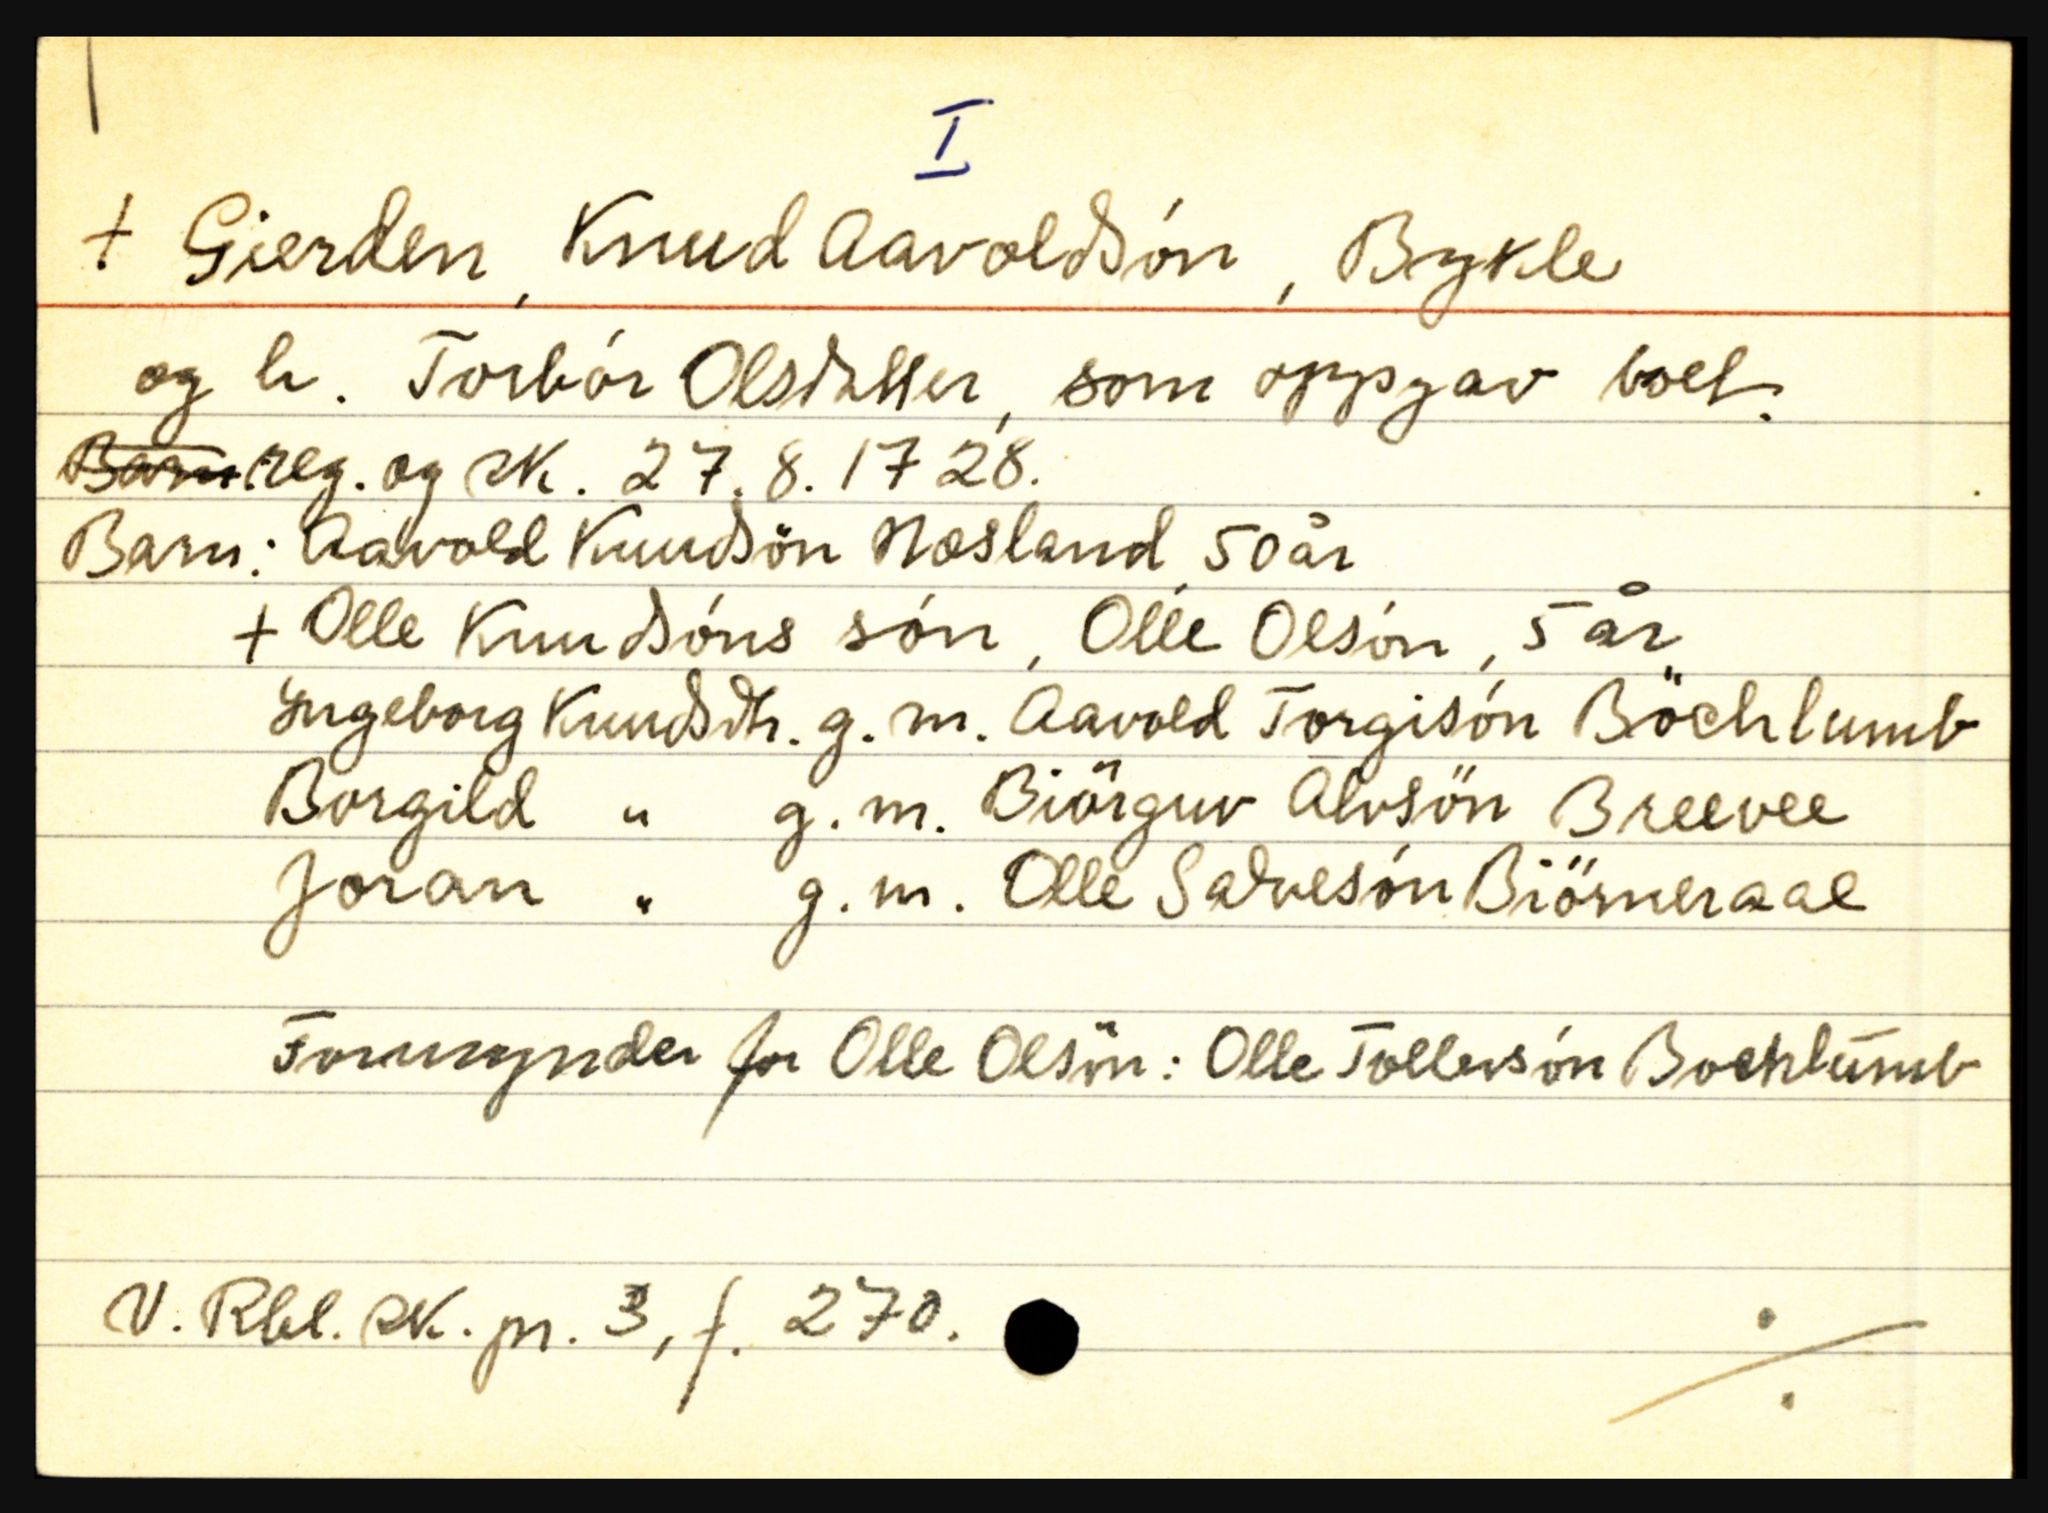 I
+ Gierden, Knud Aavoldsón, Bykle
og h. Torbór Olsdatter, som oppgav boet.
Barn. reg. og sk. 27.8.1728.
Barn: Aavold Knudsön Næsland, 50 år
+ Olle Knudsóns són, Olle Olsón, 5 år
Ingeborg Knudsdtr. g. m. Aavold Torgisón Böchlumb
Borgild " g. m. Biörguv Alvsön Breevee
Joran " g. m. Olle Salvesón Biörneraae
Formynder for Olle Olsön: Olle Tollevsón Bochlumb
V. Rbl. sk. pr. 3, f. 270.
./.